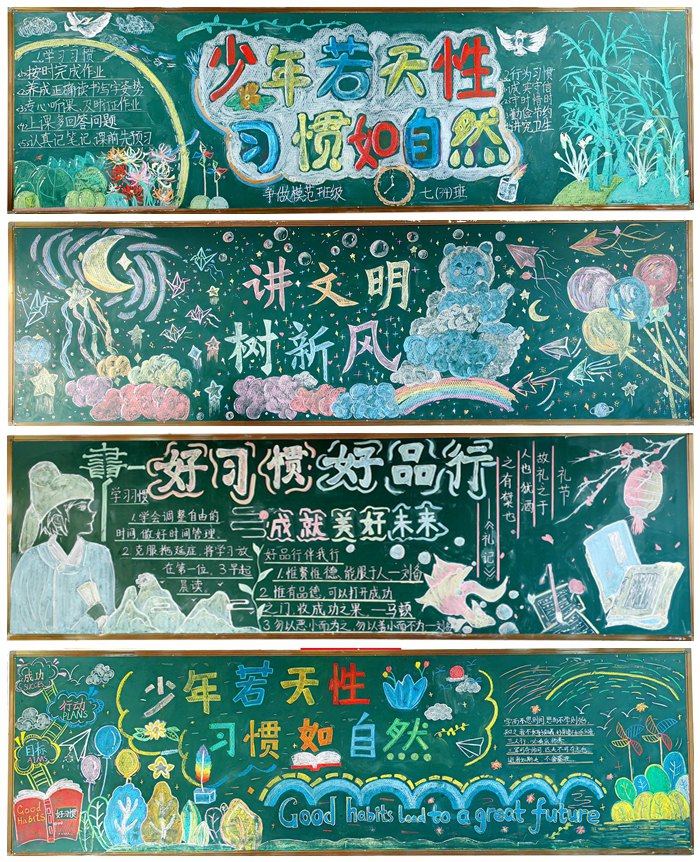 学习习惯
1.按时完成作业
2.养成正确读书写字姿势
3.专心听课、及时订正作业
4.上课多回答问题
5.认真记笔记,课前先预习
少年若天性
习惯如自然
争做模范班级
七(34)班
行为习惯
1.诚实守信
2.守时惜时
3.勤俭节约
4.讲究卫生
讲文明
树新风
好习惯好品行
成就美好未来
学习习惯
1.学会调整自由的
时间,做好时间管理.
2.克服拖延症,将学习放
在第一位.3.早起
晨读.
好品行伴我行
1.惟贤惟德,能服于人—刘备
2.惟有品德,可以打开成功
之门,收成功之果.
3.勿以恶小而为之,勿以善小而不为—刘备
礼节
故礼之于
人也 犹酒
之有蘖也
——《礼记》
成功
SUCCESS
行动
PLANS
目标
AIMS
Good
Habits
好习惯
少年若天性
习惯如自然
Good habits lead to a great future